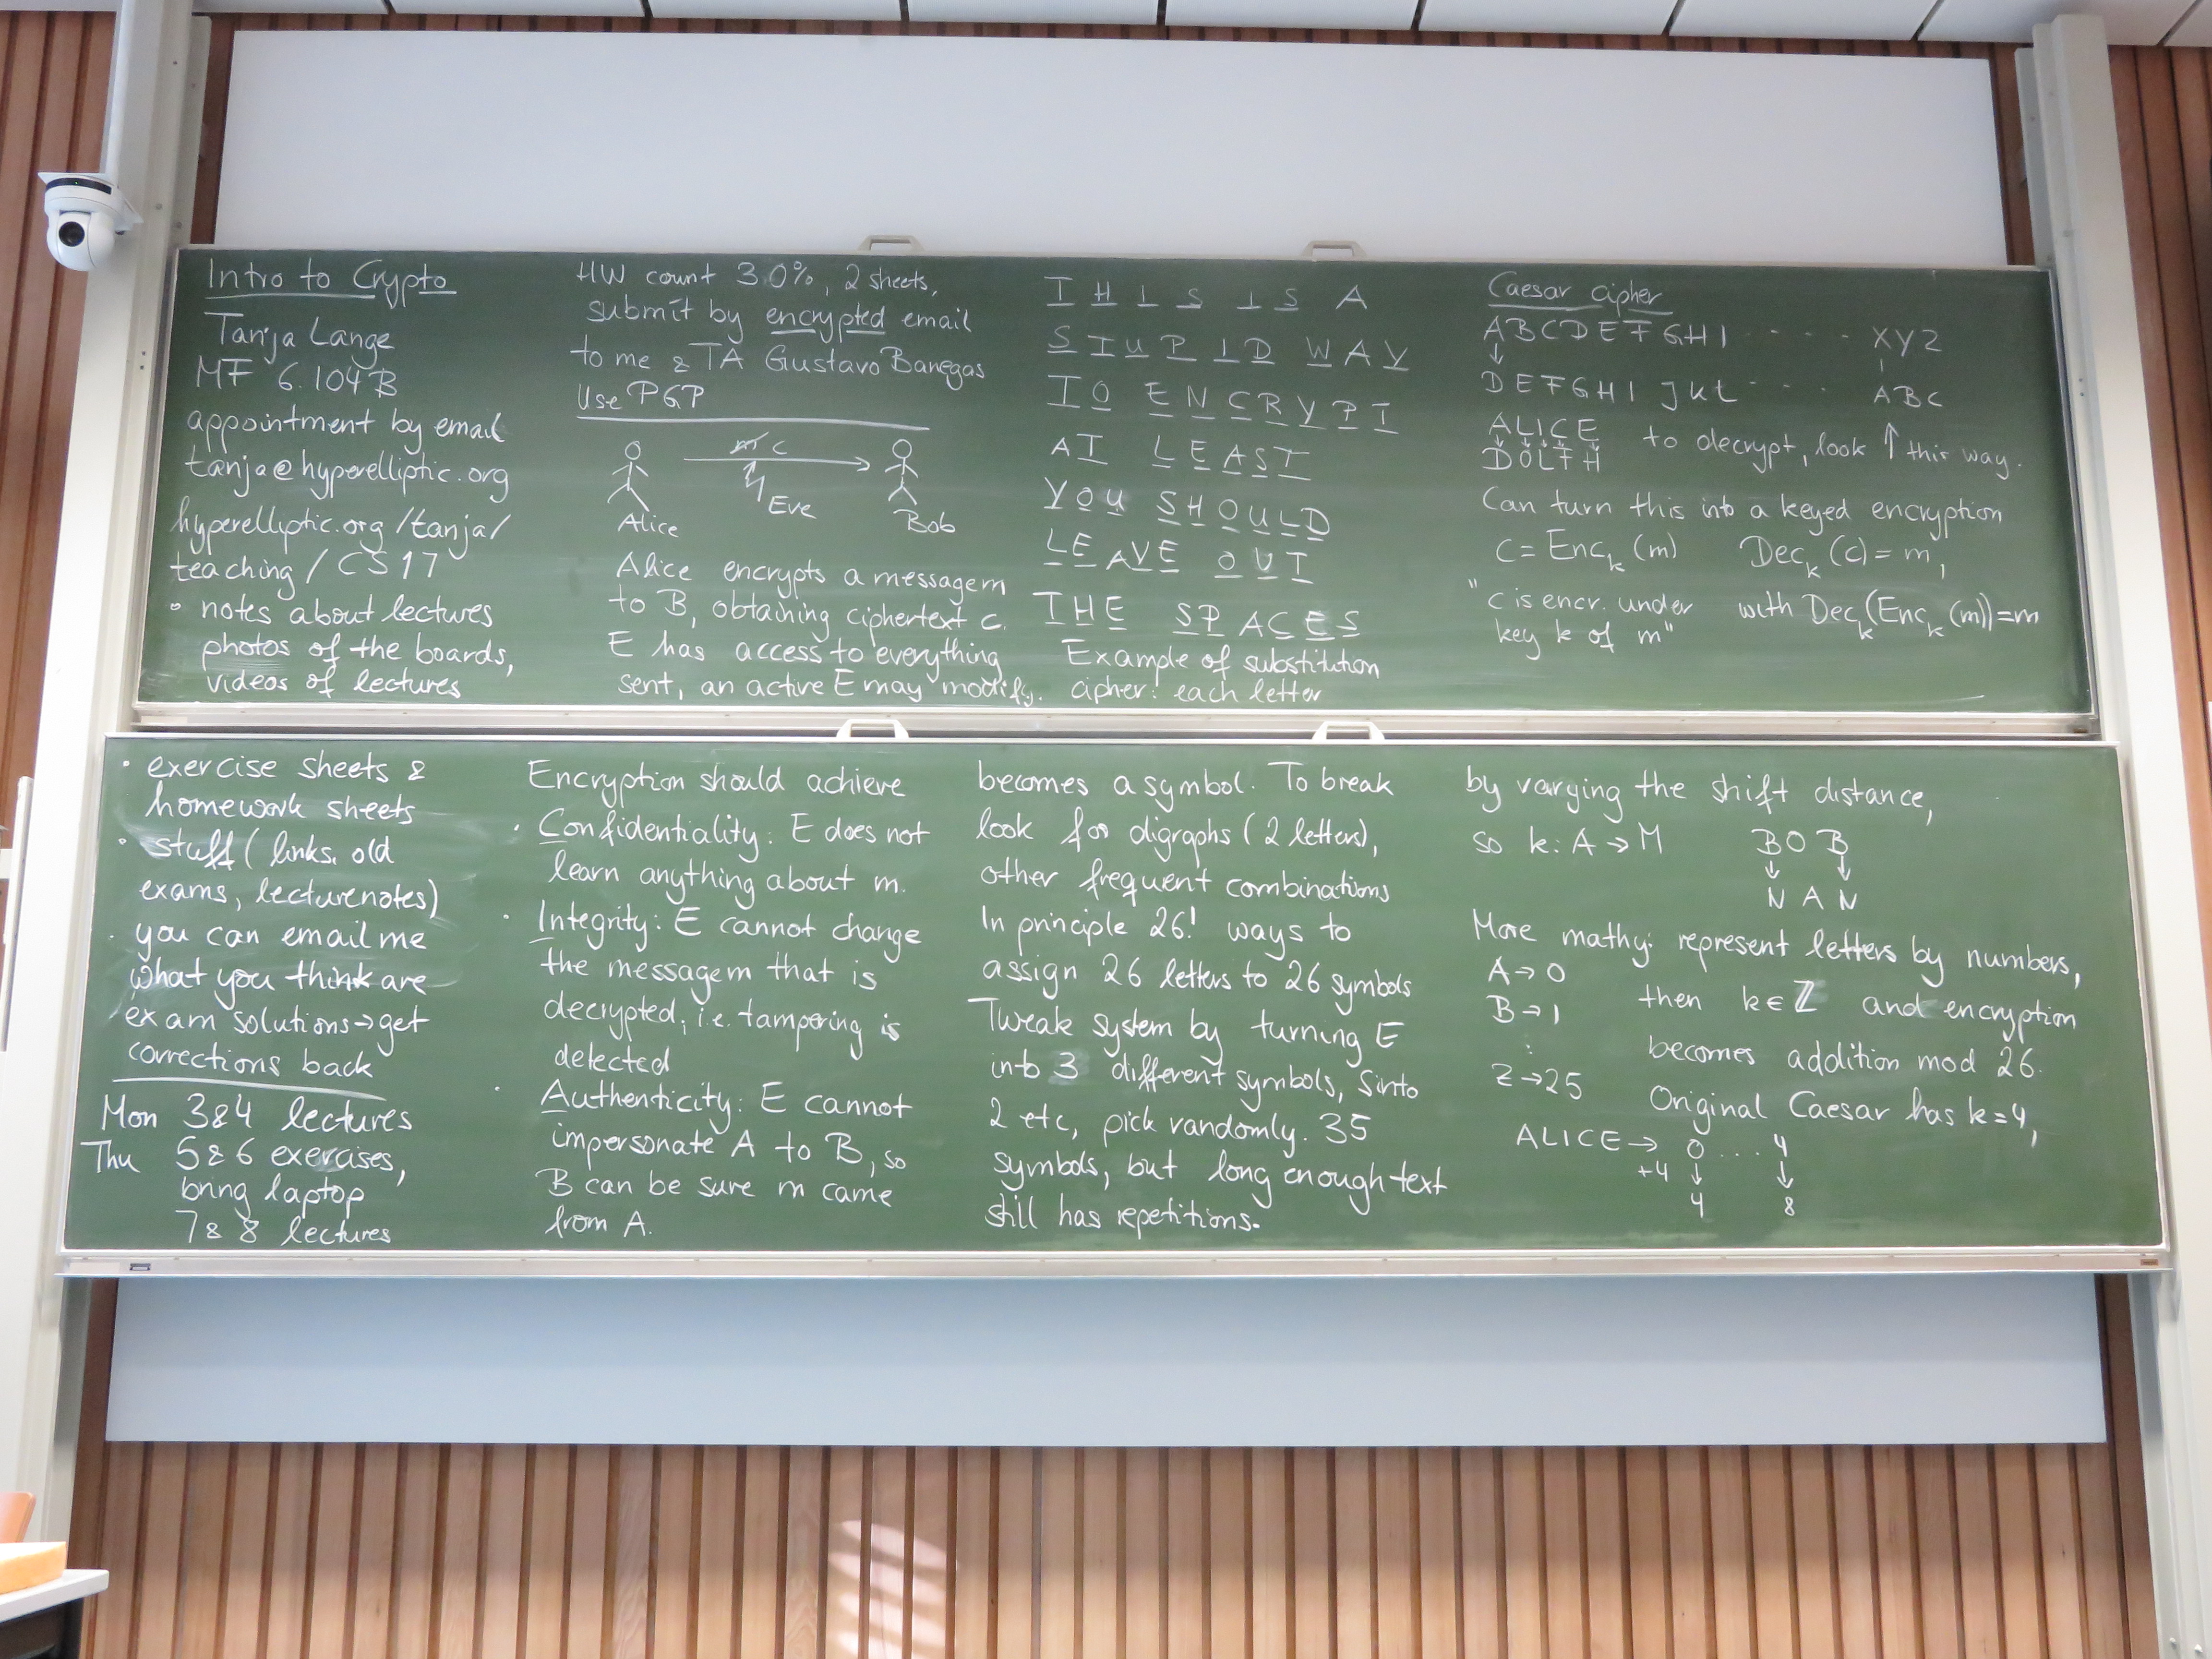 Intro to Crypto
Tanja Lange
MF 6.104B
appointment by email
tanja@hyperelliptic.org
hyperelliptic.org/tanja/
teaching/CS17
• notes about lectures
photos of the boards,
videos of lectures
• exercise sheets &
homework sheets
• stuff (links, old
exams, lecture notes)
• you can email me
what you think are
exam solutions → get
corrections back
Mon 3&4 lectures
Thu 5&6 exercises,
bring laptop
7&8 lectures
HW count 30%, 2 sheets,
submit by encrypted email
to me & TA Gustavo Banegas
Use PGP
m c
Eve
Alice Bob
Alice encrypts a message m
to B, obtaining ciphertext c.
E has access to everything
sent, an active E may modify.
Encryption should achieve
• Confidentiality: E does not
learn anything about m.
• Integrity: E cannot change
the message m that is
decrypted, i.e. tampering is
detected
• Authenticity: E cannot
impersonate A to B, so
B can be sure m came
from A.
THIS IS A
STUPID WAY
TO ENCRYPT
AT LEAST
YOU SHOULD
LEAVE OUT
THE SPACES
Example of substitution
cipher: each letter
becomes a symbol. To break
look for digraphs (2 letters),
other frequent combinations
In principle 26! ways to
assign 26 letters to 26 symbols
Tweak system by turning E
into 3 different symbols, S into
2 etc, pick randomly. 35
symbols, but long enough text
still has repetitions.
Caesar cipher
ABCDEFGHI ····· XYZ
↓
DEFGHIJKL ···· ABC
ALICE to decrypt, look ↑ this way.
DOLFH
Can turn this into a keyed encryption
c = Enc_k (m) Dec_k (c) = m,
"c is encr. under with Dec_k(Enc_k (m))=m
key k of m"
by varying the shift distance,
so k: A → M BOB
↓ ↓
NAN
More mathy: represent letters by numbers,
A → 0
B → 1 then k ∈ ℤ and encryption
⋮ becomes addition mod 26.
Z → 25
Original Caesar has k=4,
ALICE → 0 ... 4
+4 ↓ ↓
4 8